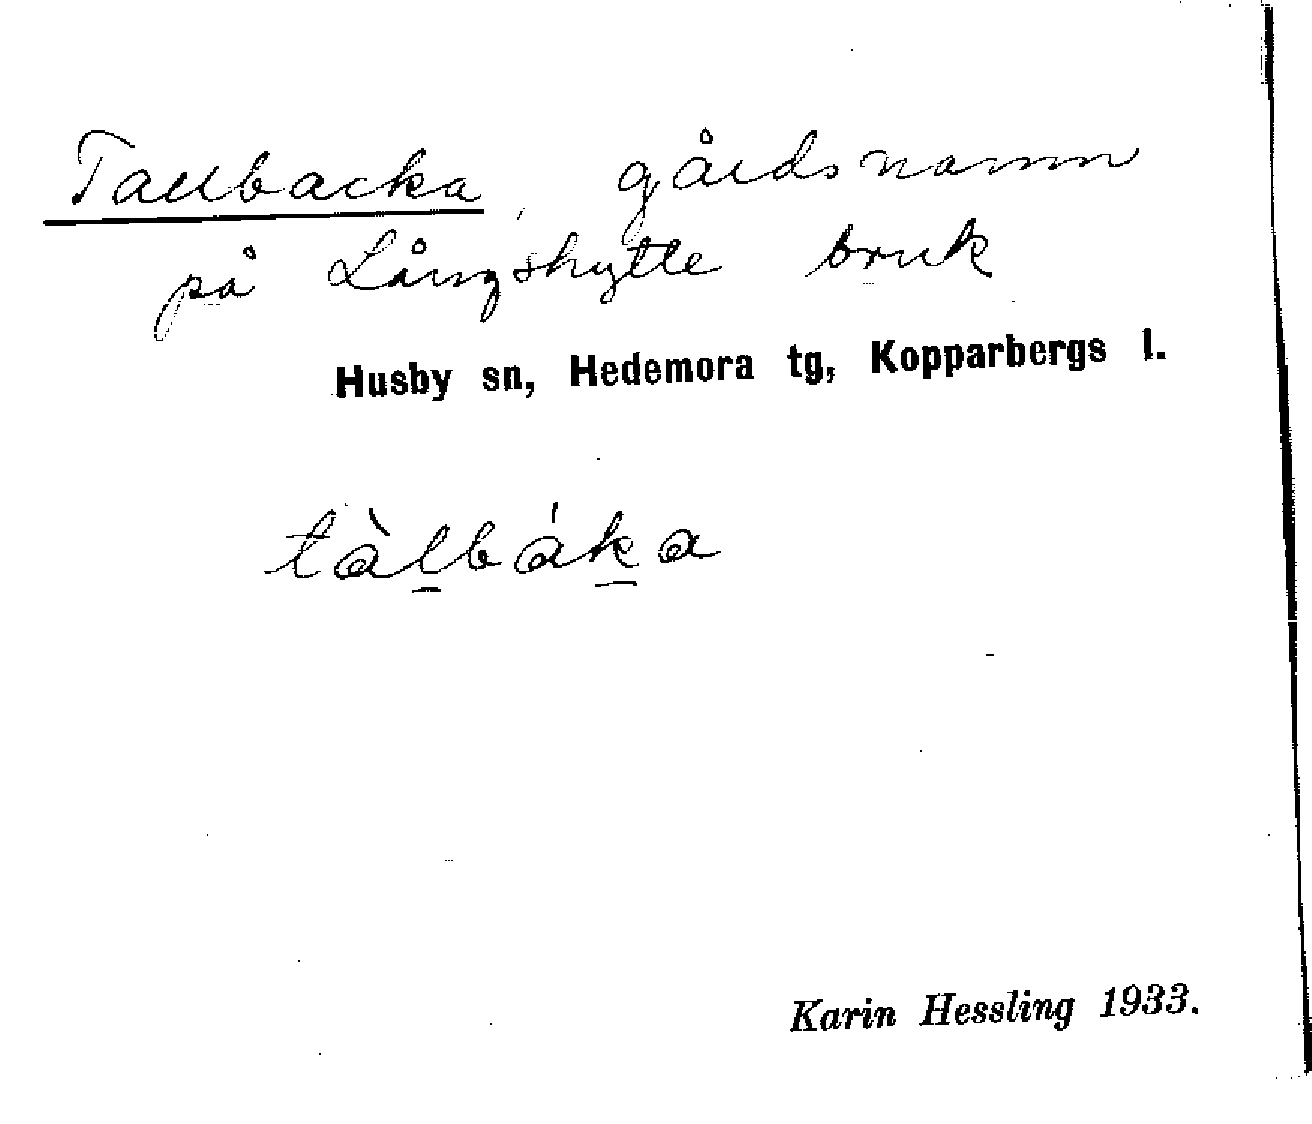 Tallbacka, gårdsnamn
på Långshytte bruk
Husby sn, Hedemora tg, Kopparbergs l.
tàl̲bák̲a
Karin Hessling 1933.